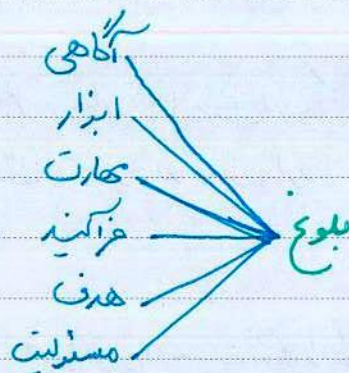 آگاهی
ابزار
مهارت
فرآیند
هدف
مسئولیت
بلوغ